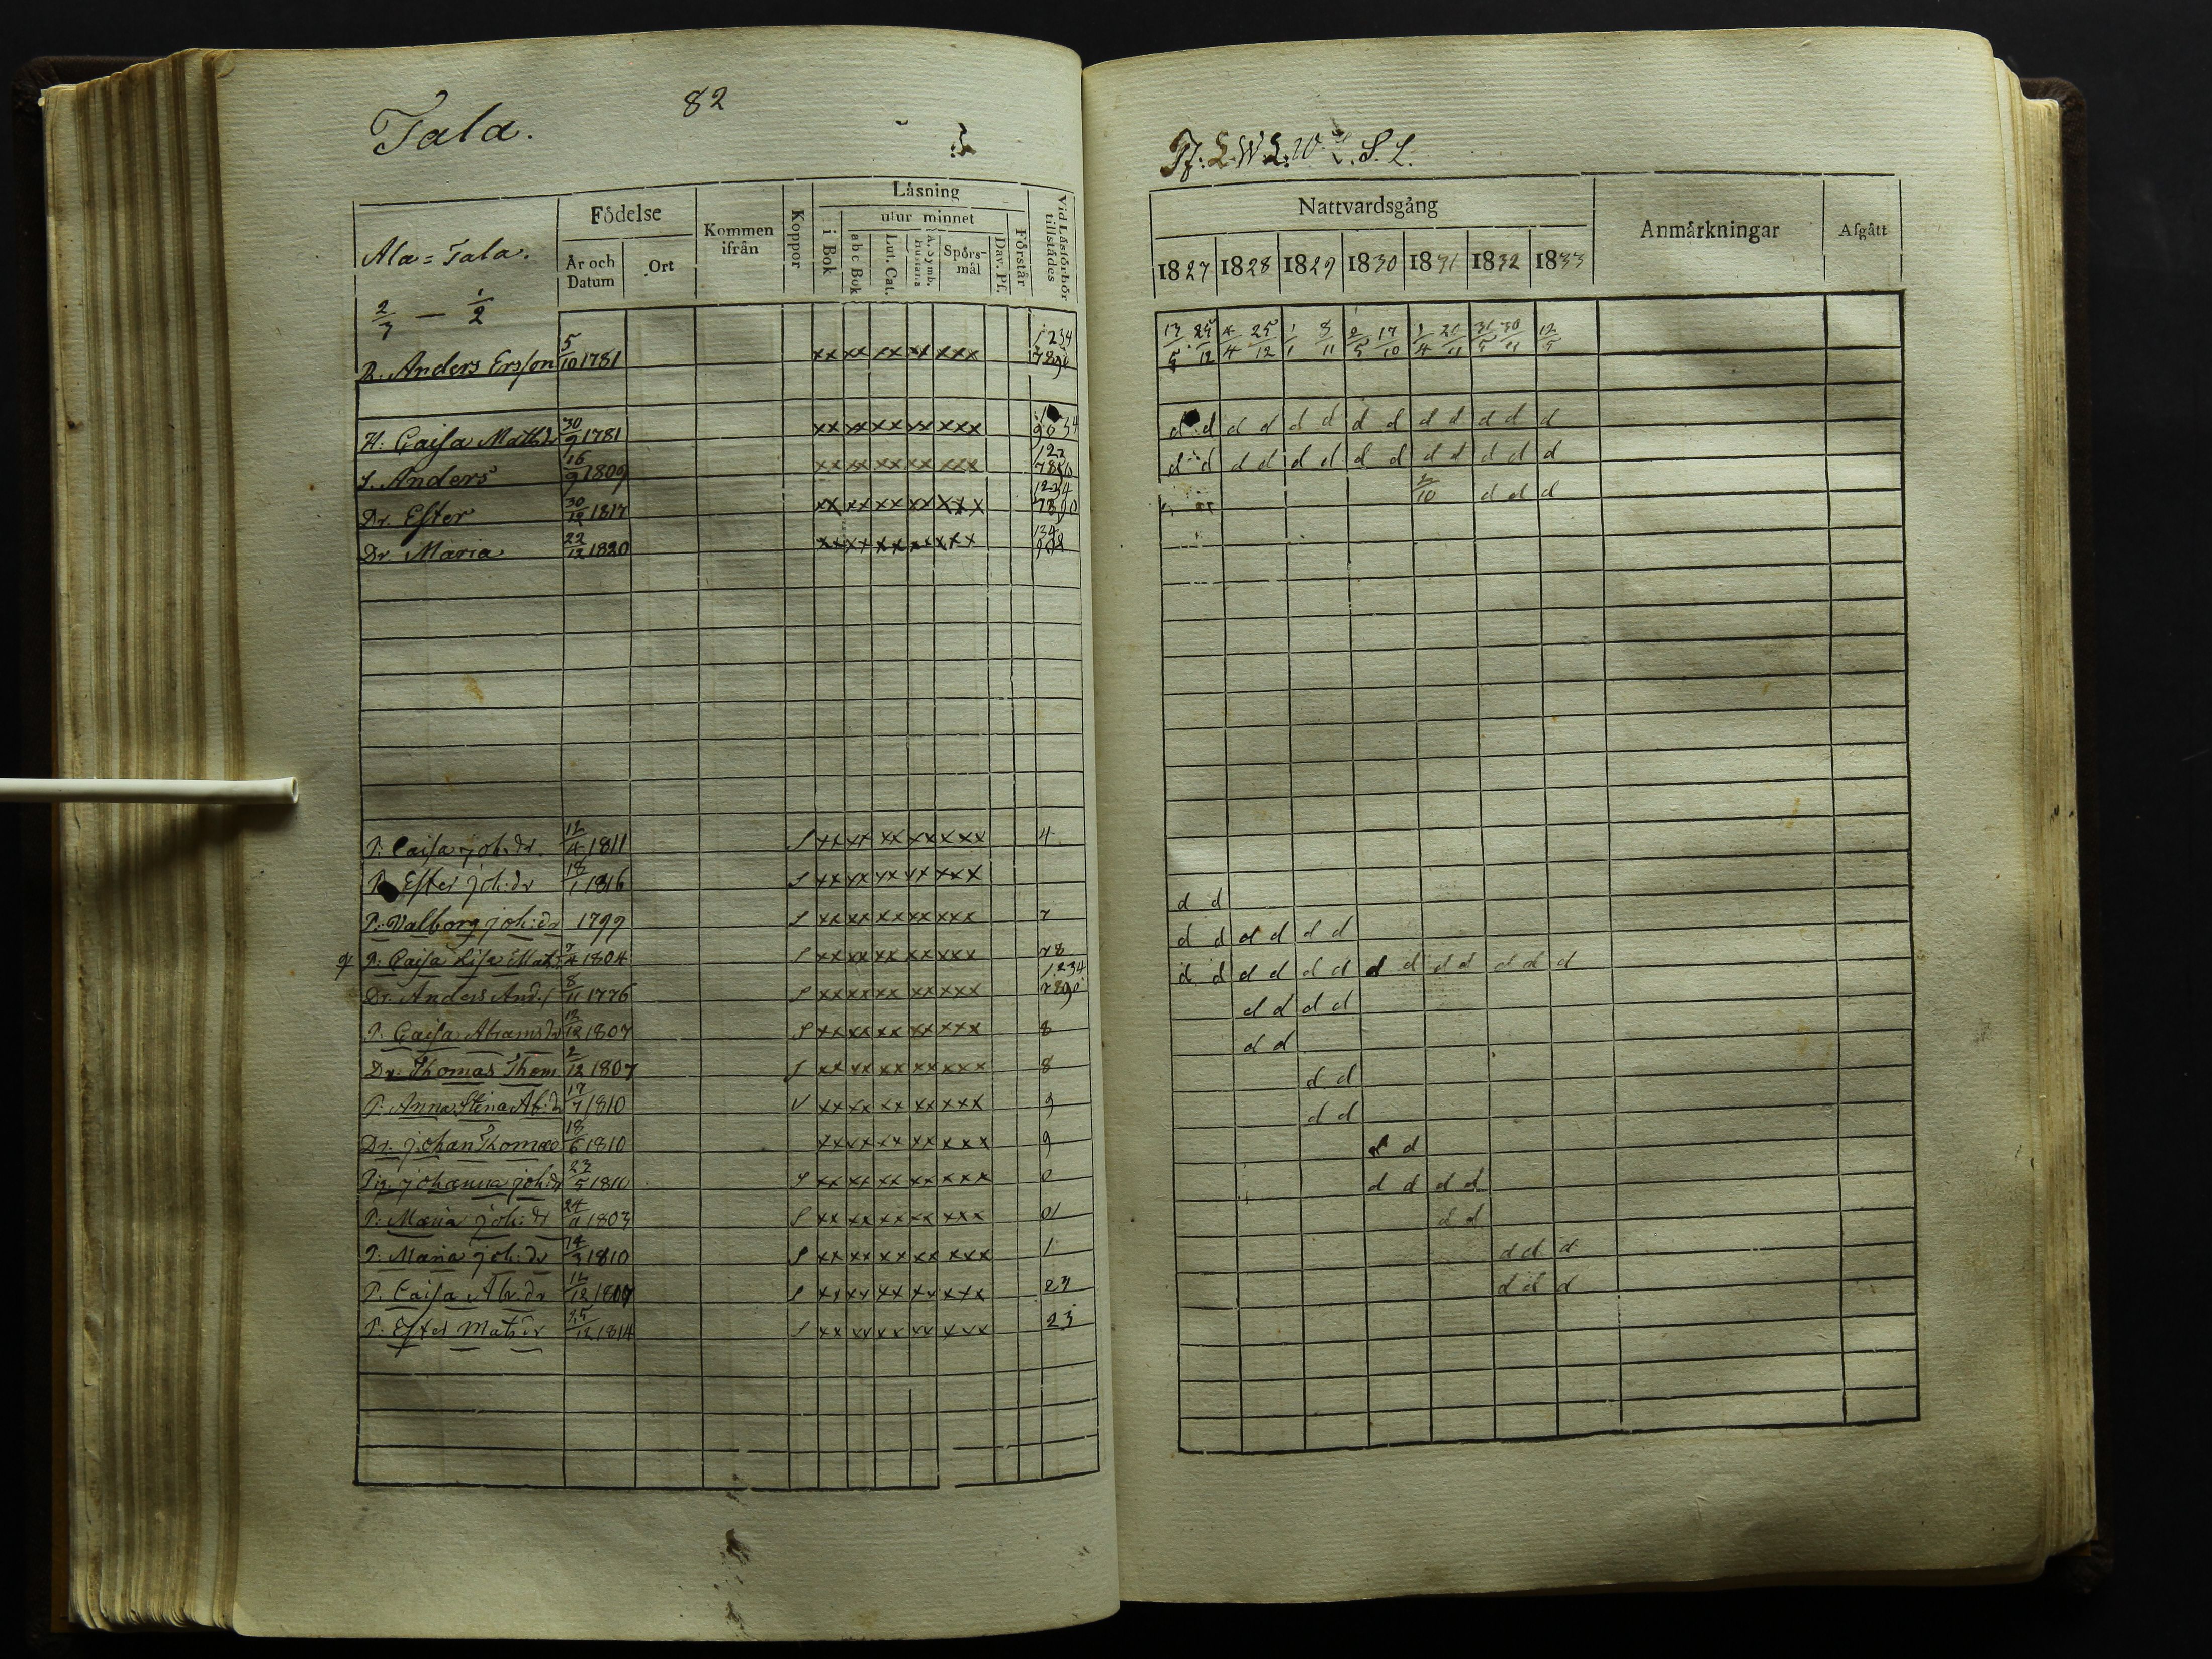 Tala.
82
Ala = Tala.
Födelse
År och Datum
Ort
Kommen ifrån
Koppor
Läsning
utur minnet
i Bok
abc Bok
Lut. Cat.
Spörsmål
Dav. Ps.
Förstår
Vid Läsförhör tillstådes
2/3 — 1/2
B. Anders Ersson 5/10 1781 xx xx xx xx xxx 1234 7890
H: Caisa Math 30/9 1781 xx xx xx xx xxx 9034
S. Anders 16/9 1809 xx xx xx xx xxx
Dr. Ester 30/12 1817 xx xx xx xx xxx 1234 7890
Dr. Maria 22/12 1820 xx xx xx xx xxx
P: Caisa Joh:dr 12/4 1811 S xx xx xx xx xxx 4
Ester Joh:dr 18/1 1816 S xx xx xx xx xxx
P: Valborg Joh:dr 1799 S xx xx xx xx xxx 7
P: Caisa Lisa Mat: 7/4 1804 S xx xx xx xx xxx 78
Dr. Anders And. 8/11 1776 S xx xx xx xx xxx 1234 7890
P. Caisa Abramsdr 13/12 1807 S xx xx xx xx xxx 8
Dr: Thomas Thom 2/12 1807 S xx xx xx xx xxx 8
P: Anna Stina Ab:d 17/7 1810 V xx xx xx xx xxx 9
Dr. Johan Thomas 18/6 1810 xx xx xx xx xxx 9
Pig. Johanna Joh:dr 23/5 1810 S xx xx xx xx xxx 0
P: Maria Joh:dr 24/11 1803 S xx xx xx xx xxx 01
P: Maria Joh:dr 14/3 1810 S xx xx xx xx xxx 1
P. Caisa Abr.dr 12/12 1807 S xx xx xx xx xxx 23
P. Ester Mats dr 25/12 1814 S xx xx xx xx xxx 23
Nattvardsgång
Anmärkningar
Afgått
1827 1828 1829 1830 1831 1832 1833
13/5 25/12 4/4 25/12 1/1 8/11 2/5 17/10 3/4 20/11 31/5 30/11 12/5
d d d d d d d d d d d d d
d d d d d d d d d d d d d
2/10 d d d
d d
d d d d d d
d d d d d d d d d d d d d
d d d d
d d
d d
d d
d d
d d d d
d d
d d d
d d d